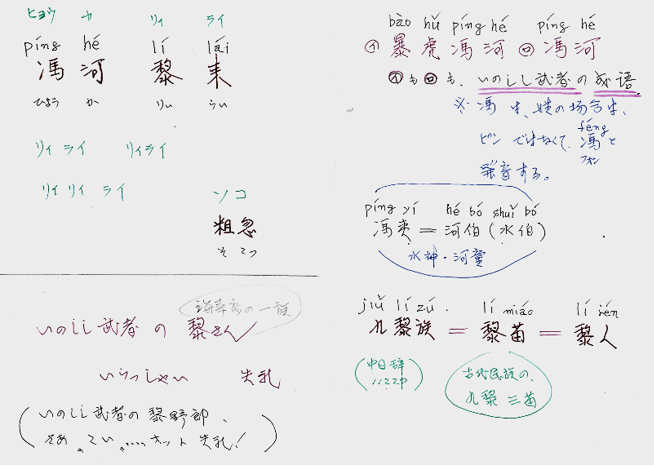 ヒョウ カ リィ ライ
píng hé lí lái
馮 河 黎 来
ひょう か りぃ らい
リィ ライ リィライ
リィ リィ ライ
ソコ
粗忽
そこつ
いのしし武者 の 黎さん
いらっしゃい 失礼
いのしし武者の黎野郎、
bào hǔ píng hé píng hé
㋑ 暴虎馮河 ㋺ 馮河
㋑も㋺も、いのしし武者の成語
※ 馮 は、姓の場合は、
ピン ではなくて、馮と
féng
フォン
発音する。
píng yí hé bó shuǐ bó
馮夷 = 河伯 (水伯)
水神・河童
jiǔ lí zú lí miáo lí rén
九黎族 = 黎苗 = 黎人
(中日辞
古代民族の、
九黎 三苗